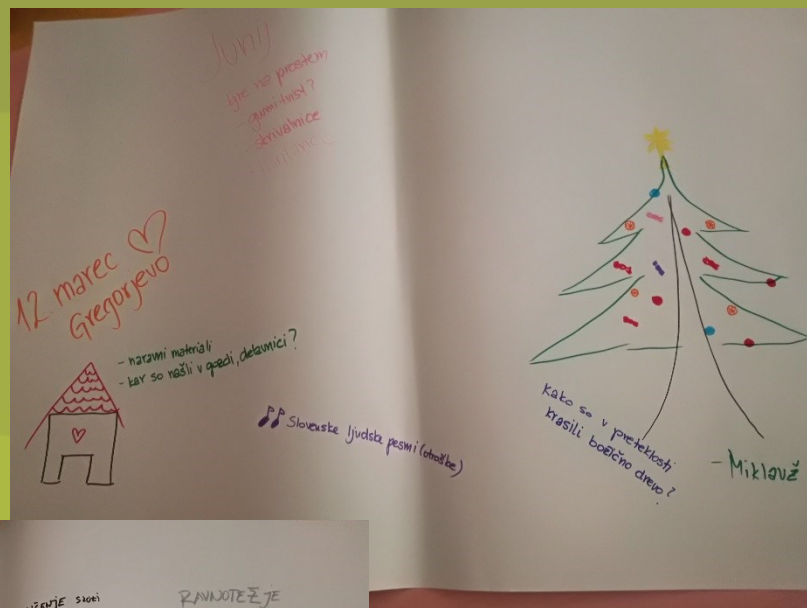 Junij
igre na prostem
- gumitvist?
- skrivalnice
12. marec
Gregorjevo
- naravni materiali
- kar so našli v gozdi, delavnici?
Slovenske ljudske pesmi (otroške)
Kako so v preteklosti
krasili božično drevo?
- Miklavž
RAVNOTEŽJE